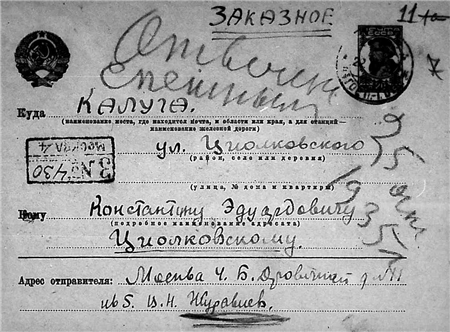 ЗАКАЗНОЕ
СССР
Куда КАЛУГА.
(наименование места, где находится почта, и области или края, а для станций — наименование железной дороги)
ул. Циолковского
(район, село или деревня)
З № 430
МОСКВА 4
(улица, № дома и квартиры)
Кому Константину Эдуардовичу
(подробное наименование адресата)
Циолковскому.
Адрес отправителя: Москва 4. Б.
кв 5.
1935